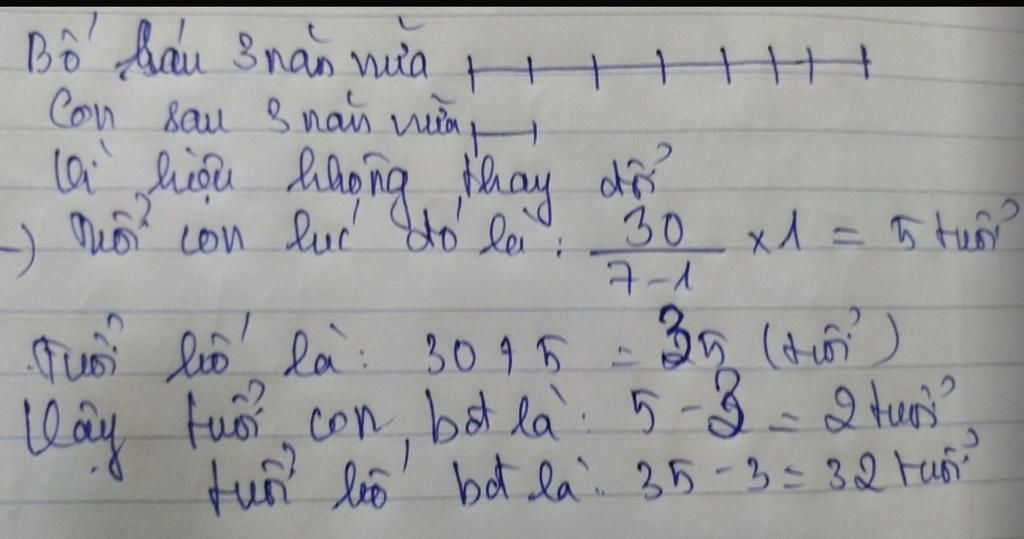 Bố sáu 3 năn nữa
Con sau 3 năn nữa
Vì hiệu không thay đổi
-) Tuổi con lúc đó là : 30 / 7-1 x 1 = 5 tuổi
Tuổi bố là: 30 + 5 = 35 (tuổi)
Vậy tuổi con bđ là: 5 - 3 = 2 tuổi
tuổi bố bđ là: 35 - 3 = 32 tuổi